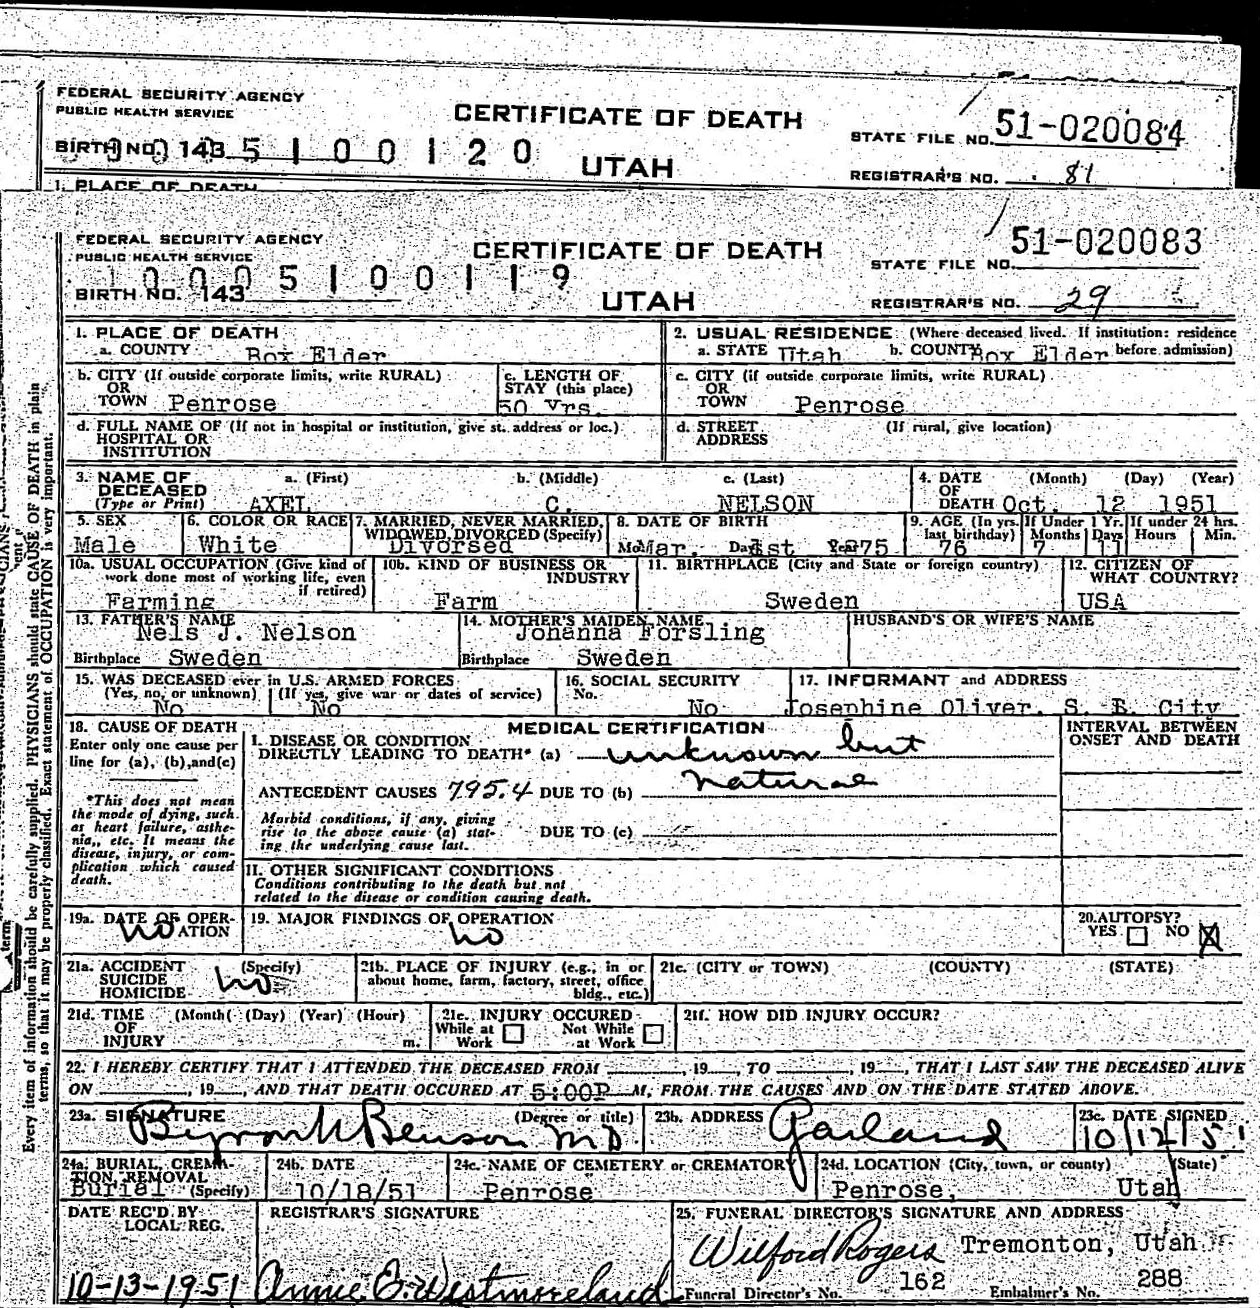 FEDERAL SECURITY AGENCY
PUBLIC HEALTH SERVICE
CERTIFICATE OF DEATH
STATE FILE NO. 51-020084
BIRTH NO. 143 5 1 0 0 1 2 0
UTAH
REGISTRAR'S NO. 81
1. PLACE OF DEATH
FEDERAL SECURITY AGENCY
PUBLIC HEALTH SERVICE
CERTIFICATE OF DEATH
51-020083
STATE FILE NO.
1 0 0 0 5 1 0 0 1 1 9
BIRTH NO. 143
UTAH
REGISTRAR'S NO. 29
Every item of information should be carefully supplied. PHYSICIANS should state CAUSE OF DEATH in plain
terms, so that it may be properly classified. Exact statement of OCCUPATION is very important.
1. PLACE OF DEATH
a. COUNTY Box Elder
2. USUAL RESIDENCE (Where deceased lived. If institution: residence
a. STATE Utah b. COUNTY Box Elder before admission)
b. CITY (If outside corporate limits, write RURAL)
OR
TOWN Penrose
c. LENGTH OF
STAY (this place)
50 Yrs.
c. CITY (if outside corporate limits, write RURAL)
OR
TOWN Penrose
d. FULL NAME OF (If not in hospital or institution, give st. address or loc.)
HOSPITAL OR
INSTITUTION
d. STREET (If rural, give location)
ADDRESS
3. NAME OF DECEASED
(Type or Print)
a. (First) b. (Middle) c. (Last)
AXEL C. NELSON
4. DATE OF DEATH (Month) (Day) (Year)
Oct. 12 1951
5. SEX
Male
6. COLOR OR RACE
White
7. MARRIED, NEVER MARRIED,
WIDOWED, DIVORCED (Specify)
Divorsed
8. DATE OF BIRTH
Mo. Mar. Day 1st Year 1875
9. AGE (In yrs. last birthday)
76
If Under 1 Yr.
Months Days
7 11
If under 24 hrs.
Hours Min.
10a. USUAL OCCUPATION (Give kind of
work done most of working life, even
if retired)
Farming
10b. KIND OF BUSINESS OR
INDUSTRY
Farm
11. BIRTHPLACE (City and State or foreign country)
Sweden
12. CITIZEN OF
WHAT COUNTRY?
USA
13. FATHER'S NAME
Nels J. Nelson
Birthplace Sweden
14. MOTHER'S MAIDEN NAME
Johanna Forsling
Birthplace Sweden
HUSBAND'S OR WIFE'S NAME
15. WAS DECEASED ever in U.S. ARMED FORCES
(Yes, no, or unknown) (If yes, give war or dates of service)
No No
16. SOCIAL SECURITY
No.
No
17. INFORMANT and ADDRESS
Josephine Oliver, S. L. City
18. CAUSE OF DEATH
Enter only one cause per
line for (a), (b), and (c)
*This does not mean
the mode of dying, such
as heart failure, asthe-
nia, etc. It means the
disease, injury, or com-
plication which caused
death.
MEDICAL CERTIFICATION
I. DISEASE OR CONDITION
DIRECTLY LEADING TO DEATH* (a) unknown but
natural
ANTECEDENT CAUSES 795.4 DUE TO (b)
Morbid conditions, if any, giving
rise to the above cause (a) stat-
ing the underlying cause last.
DUE TO (c)
II. OTHER SIGNIFICANT CONDITIONS
Conditions contributing to the death but not
related to the disease or condition causing death.
INTERVAL BETWEEN
ONSET AND DEATH
19a. DATE OF OPER-
ATION
no
19. MAJOR FINDINGS OF OPERATION
no
20. AUTOPSY?
YES NO X
21a. ACCIDENT (Specify)
SUICIDE
HOMICIDE
no
21b. PLACE OF INJURY (e.g., in or
about home, farm, factory, street, office
bldg., etc.)
21c. (CITY or TOWN) (COUNTY) (STATE)
21d. TIME (Month) (Day) (Year) (Hour)
OF
INJURY m.
21e. INJURY OCCURED
While at Work Not While at Work
21f. HOW DID INJURY OCCUR?
22. I HEREBY CERTIFY THAT I ATTENDED THE DECEASED FROM , 19 , TO , 19 , THAT I LAST SAW THE DECEASED ALIVE
ON , 19 , AND THAT DEATH OCCURED AT 5:00P M, FROM THE CAUSES AND ON THE DATE STATED ABOVE.
23a. SIGNATURE (Degree or title)
Byron N Benson MD
23b. ADDRESS
Garland
23c. DATE SIGNED
10/12/51
24a. BURIAL, CREMA-
TION, REMOVAL
Burial (Specify)
24b. DATE
10/18/51
24c. NAME OF CEMETERY or CREMATORY
Penrose
24d. LOCATION (City, town, or county) (State)
Penrose, Utah
DATE REC'D BY
LOCAL REG.
10-13-1951
REGISTRAR'S SIGNATURE
Annie E. Westmoreland
25. FUNERAL DIRECTOR'S SIGNATURE AND ADDRESS
Wilford Rogers Tremonton, Utah
Funeral Director's No. 162 Embalmer's No. 288